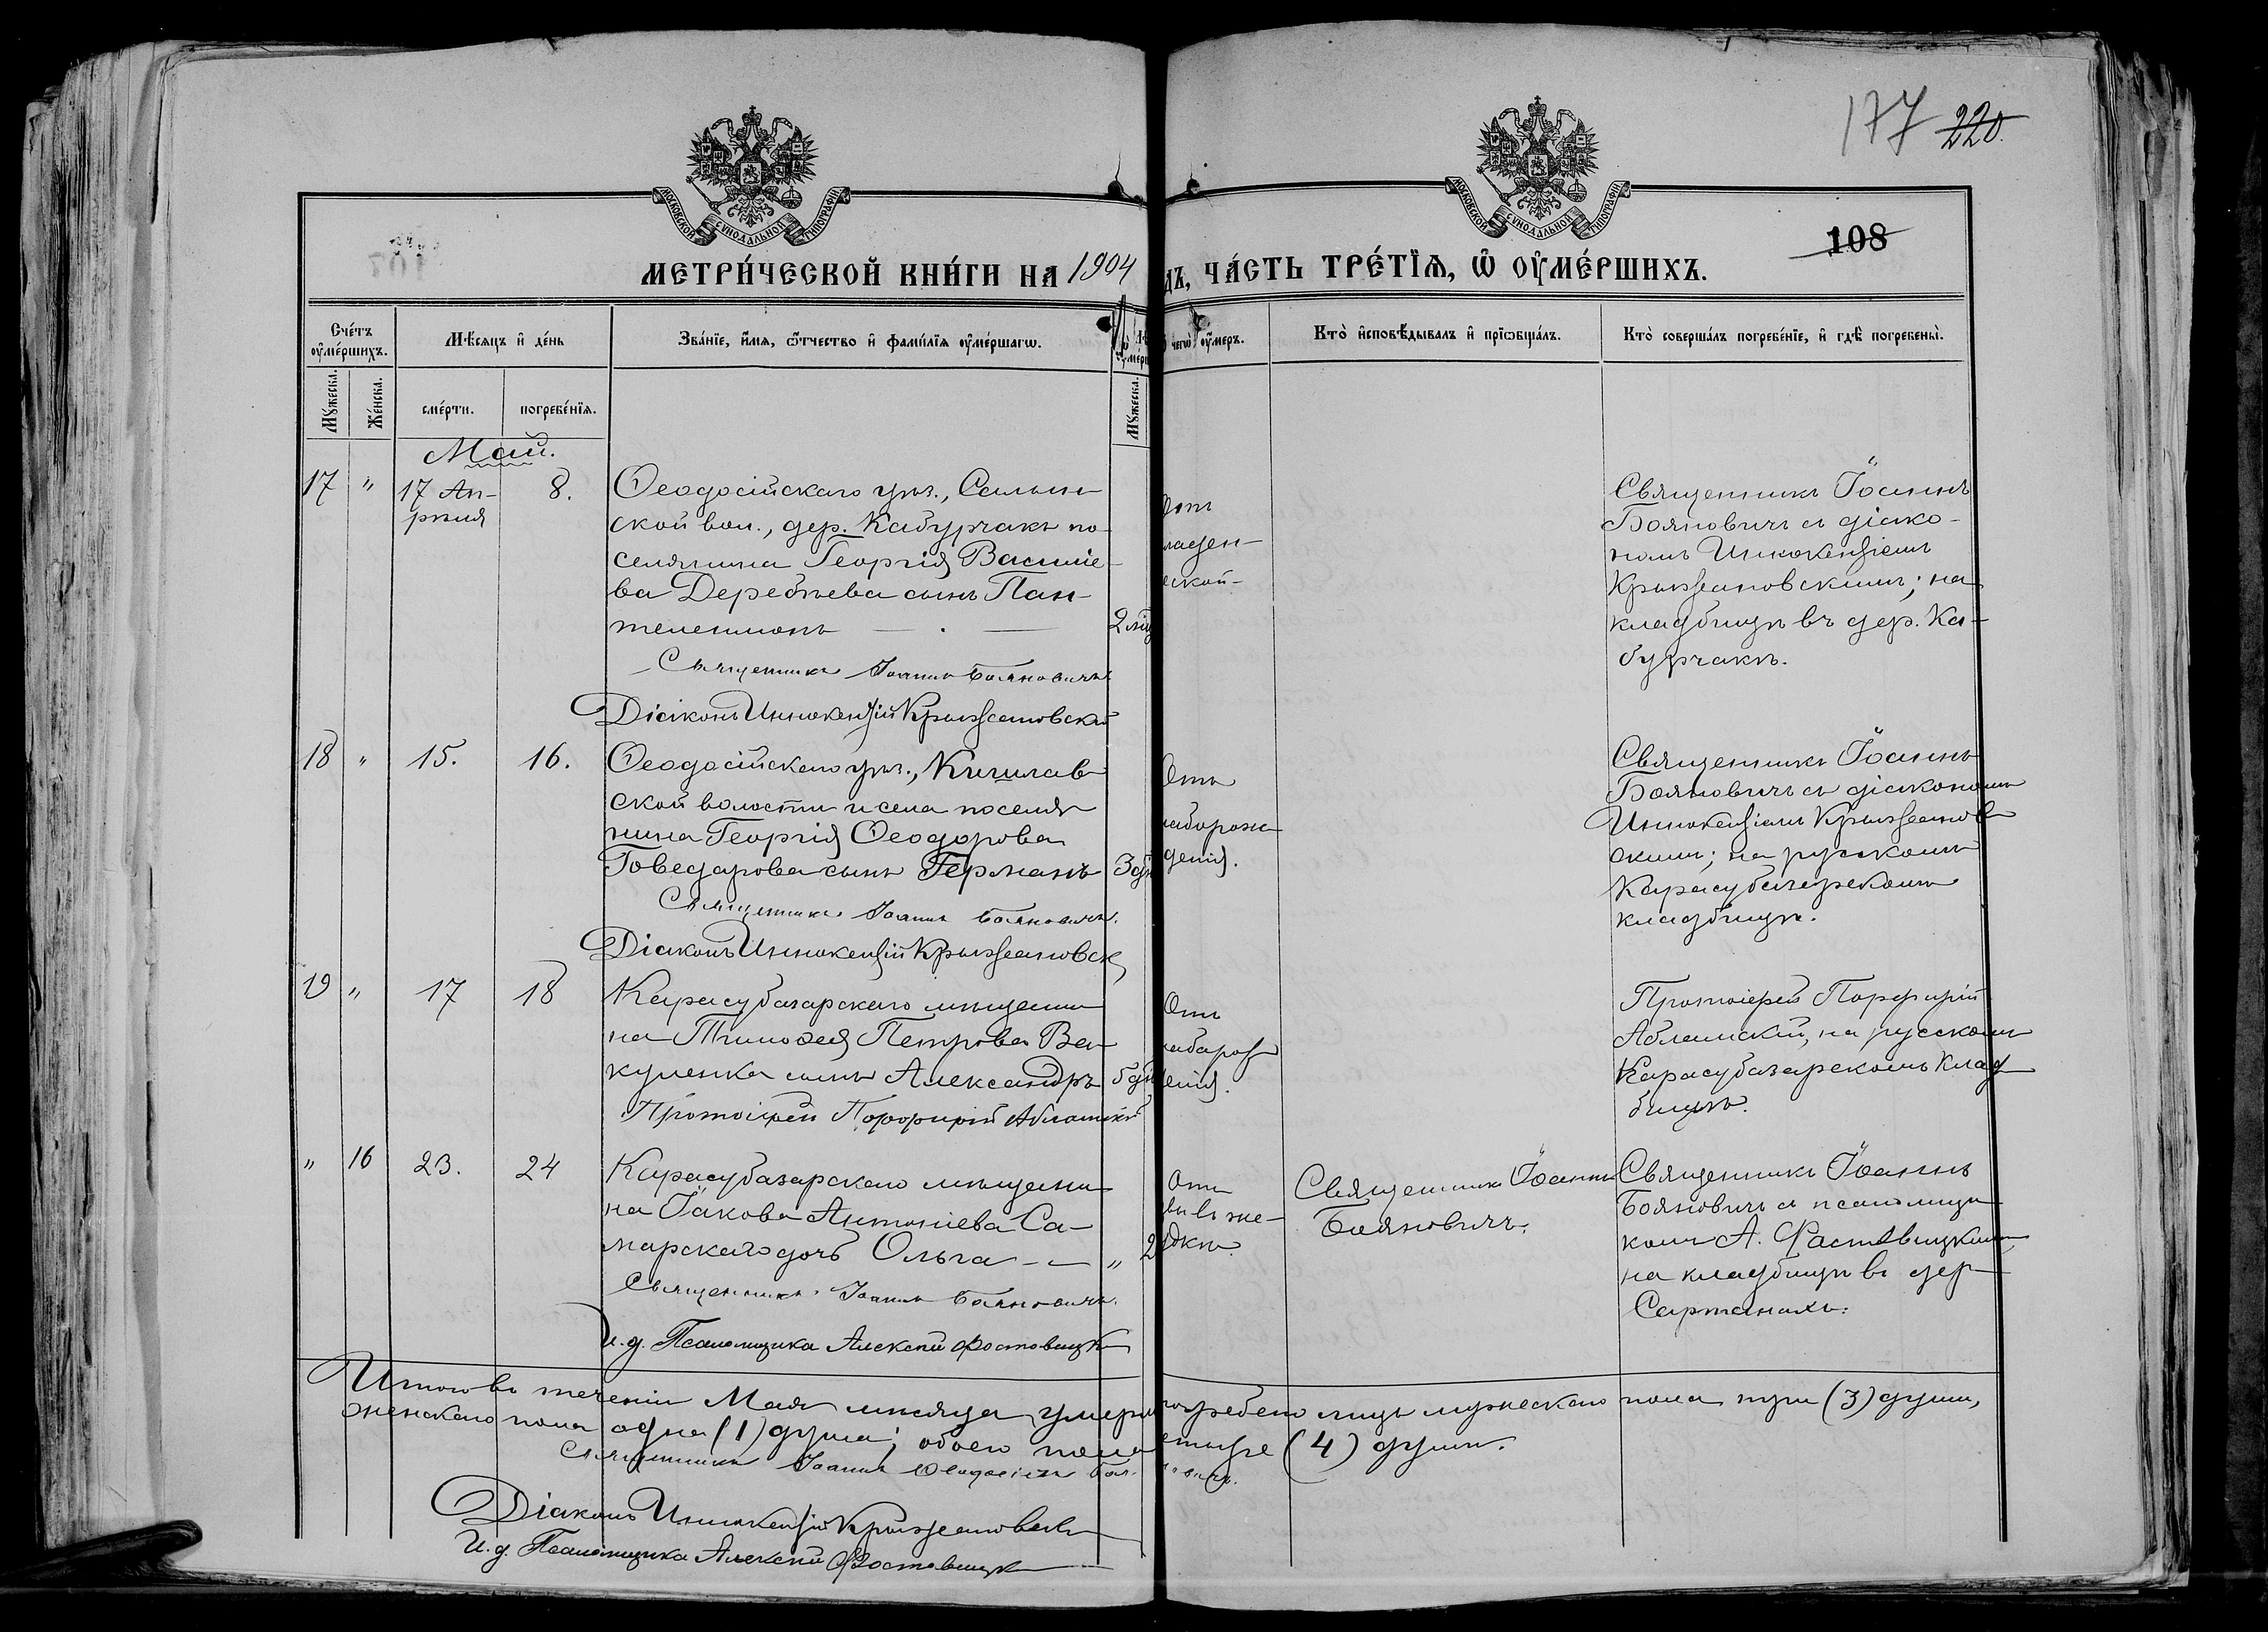 177 220.
МОСКОВСКОЙ СѴНОДАЛЬНОЙ ТИПОГРАФІИ
МОСКОВСКОЙ СѴНОДАЛЬНОЙ ТИПОГРАФІИ
108
МЕТРИ́ЧЕСКОЙ КНИ́ГИ НА 1904
ДЪ, ЧА́СТЬ ТРЕ́ТЇѦ, Ѡ҆ ОУ҆МЕ́РШИХЪ.
Сче́тъ оу҆ме́ршихъ.
Мꙋ́жеска.
Же́нска.
Мѣ́сяцъ и҆ де́нь
сме́рти.
погребе́нїѧ.
Зва́нїе, и҆́мѧ, ѻ҆́тчество и҆ фами́лїѧ оу҆ме́ршагѡ.
Мꙋ́жеска.
чегѡ̀ оу҆́меръ.
Кто̀ и҆сповѣ́дывалъ и҆ прїѡбща́лъ.
Кто̀ соверша́лъ погребе́нїе, и҆ гдѣ̀ погребены̀.
Май.
17 " 17 Ап- 8.
рѣля
Ѳеодосійскаго уѣз., Салын-
ской вол., дер. Кабурчакъ по-
селянина Георгія Василіе-
ва Деребѣева сынъ Пан-
телеимонъ — . — 2 мѣ
Священникъ Іоаннъ Бояновичъ.
Діаконъ Иннокентій Крыжановскій
ладен-
ческой-
Священникъ Іоаннъ
Бояновичъ съ діако-
номъ Иннокентіемъ
Крыжановскимъ; на
кладбищѣ въ дер. Ка-
бурчакъ.
18 " 15. 16.
Ѳеодосійскаго уѣз., Кишлав-
ской волости и села поселя-
нина Георгія Ѳеодорова
Говедарова сынъ Германъ 3 дн
Священникъ Іоаннъ Бояновичъ.
Діаконъ Иннокентій Крыжановск
Отъ
лаборож-
денія.
Священникъ Іоаннъ
Бояновичъ съ діакономъ
Иннокентіемъ Крыжанов-
скимъ; на русскомъ
Карасубазарскомъ
кладбищѣ.
19 " 17 18
Карасубазарскаго мѣщани-
на Тимоѳея Петрова Ва-
куленка сынъ Александръ 5 дн
Протоіерей Порфирій Абламскій
Отъ
лаборож
денія.
Протоіерей Порфирій
Абламскій, на русскомъ
Карасубазарскомъ клад-
бищѣ.
" 16 23. 24
Карасубазарскаго мѣщани-
на Іакова Антоніева Са-
марскаго дочь Ольга - — " 2
Священникъ Іоаннъ Бояновичъ.
И. д. Псаломщика Алексѣй Фастовицкі
Отъ
вы въ же-
лудкѣ.
Священникъ Іоаннъ
Бояновичъ.
Священникъ Іоаннъ
Бояновичъ съ псаломщи-
комъ А. Фастовицкимъ,
на кладбищѣ въ дер.
Сартанахъ.
Итого въ теченіи Мая мѣсяца умерш погребено лицъ мужескаго пола три (3) души,
женскаго пола одна (1) душа; обоего пола четыре (4) души.
Священникъ Іоаннъ Ѳеодосіевъ Бояновичъ.
Діаконъ Иннокентій Крыжановскі
И. д. Псаломщика Алексѣй Фастовицкі